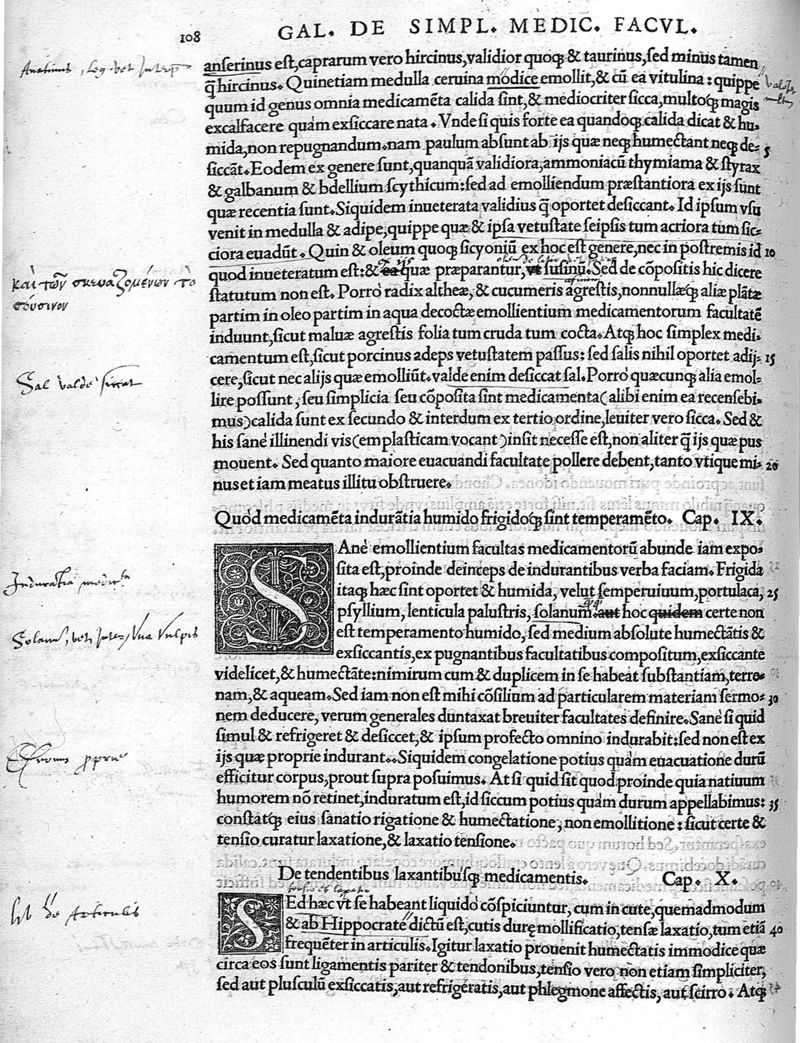 108
GAL. DE SIMPL. MEDIC. FACVL.
anserinus est, caprarum vero hircinus, validior quoq; & taurinus, sed minus tamen
q̃ hircinus. Quinetiam medulla ceruina modice emollit, & cũ ea vitulina: quippe
quum id genus omnia medicamẽta calida sint, & mediocriter sicca, multoq; magis
excalfacere quàm exsiccare nata. Vnde si quis forte ea quandoq; calida dicat & hu-
mida, non repugnandum. nam paulum absunt ab ijs quæ neq; humectant neq; de- 5
siccãt. Eodem ex genere sunt, quanquã validiora, ammoniacũ thymiama & styrax
& galbanum & bdellium scythicum: sed ad emolliendum præstantiora ex ijs sunt
quæ recentia sunt. Siquidem inueterata validius q̃ oportet desiccant. Id ipsum vsu
venit in medulla & adipe, quippe quæ & ipsa vetustate seipsis tum acriora tum sic-
ciora euadũt. Quin & oleum quoq; sicyoniũ ex hoc est genere, nec in postremis id 10
quod inueteratum est: & ea quæ præparantur, vt susinũ. Sed de cõpositis hic dicere
statutum non est. Porrò radix altheæ, & cucumeris agrestis, nonnullæq; aliæ plãtæ
partim in oleo partim in aqua decoctæ emollientium medicamentorum facultatẽ
induunt, sicut maluæ agrestis folia tum cruda tum cocta. Atq; hoc simplex medi-
camentum est, sicut porcinus adeps vetustatem passus: sed salis nihil oportet adij- 15
cere, sicut nec alijs quæ emolliũt. valde enim desiccat sal. Porrò quæcunq; alia emol-
lire possunt, seu simplicia seu cõposita sint medicamenta (alibi enim ea recensebi-
mus) calida sunt ex secundo & interdum ex tertio ordine, leuiter vero sicca. Sed &
his sanè illinendi vis (emplasticam vocant) insit necesse est, non aliter q̃ ijs quæ pus
mouent. Sed quanto maiore euacuandi facultate pollere debent, tanto vtique mi- 20
nus et iam meatus illitu obstruere.
Quòd medicamẽta indurãtia humido frigidoq; sint temperamẽto. Cap. IX.
SAnè emollientium facultas medicamentorũ abunde iam expo-
sita est, proinde deinceps de indurantibus verba faciam. Frigida
itaq; hæc sint oportet & humida, velut semperuiuum, portulaca, 25
psyllium, lenticula palustris, solanum. aut hoc quidem certe non
est temperamento humido, sed medium absolute humectãtis &
exsiccantis, ex pugnantibus facultatibus compositum, exsiccante
videlicet, & humectãte: nimirum cum & duplicem in se habeat substantiam, terre-
nam, & aqueam. Sed iam non est mihi cõsilium ad particularem materiam sermo- 30
nem deducere, verum generales duntaxat breuiter facultates definire. Sanè si quid
simul & refrigeret & desiccet, & ipsum profecto omnino indurabit: sed non est ex
ijs quæ proprie indurant. Siquidem congelatione potius quàm euacuatione durũ
efficitur corpus, prout supra posuimus. At si quid sit quod proinde quia natiuum
humorem nõ retinet, induratum est, id siccum potius quàm durum appellabimus: 35
constatq; eius sanatio rigatione & humectatione, non emollitione: sicut certe &
tensio curatur laxatione, & laxatio tensione.
De tendentibus laxantibusq; medicamentis. Cap. X.
SEd hæc vt se habeant liquido cõspiciuntur, cum in cute, quemadmodum
& ab Hippocrate dictũ est, cutis duræ mollificatio, tensæ laxatio, tum etiã 40
frequẽter in articulis. Igitur laxatio prouenit humectatis immodice quæ
circa eos sunt ligamentis pariter & tendonibus, tensio vero non etiam simpliciter,
sed aut plusculũ exsiccatis, aut refrigeratis, aut phlegmone affectis, aut scirro. Atq;
καὶ τῶν σκευαζομένων τὸ
σούσινον
Sal valde siccat
Solanũ, vet. Inter. Vua Vulpis